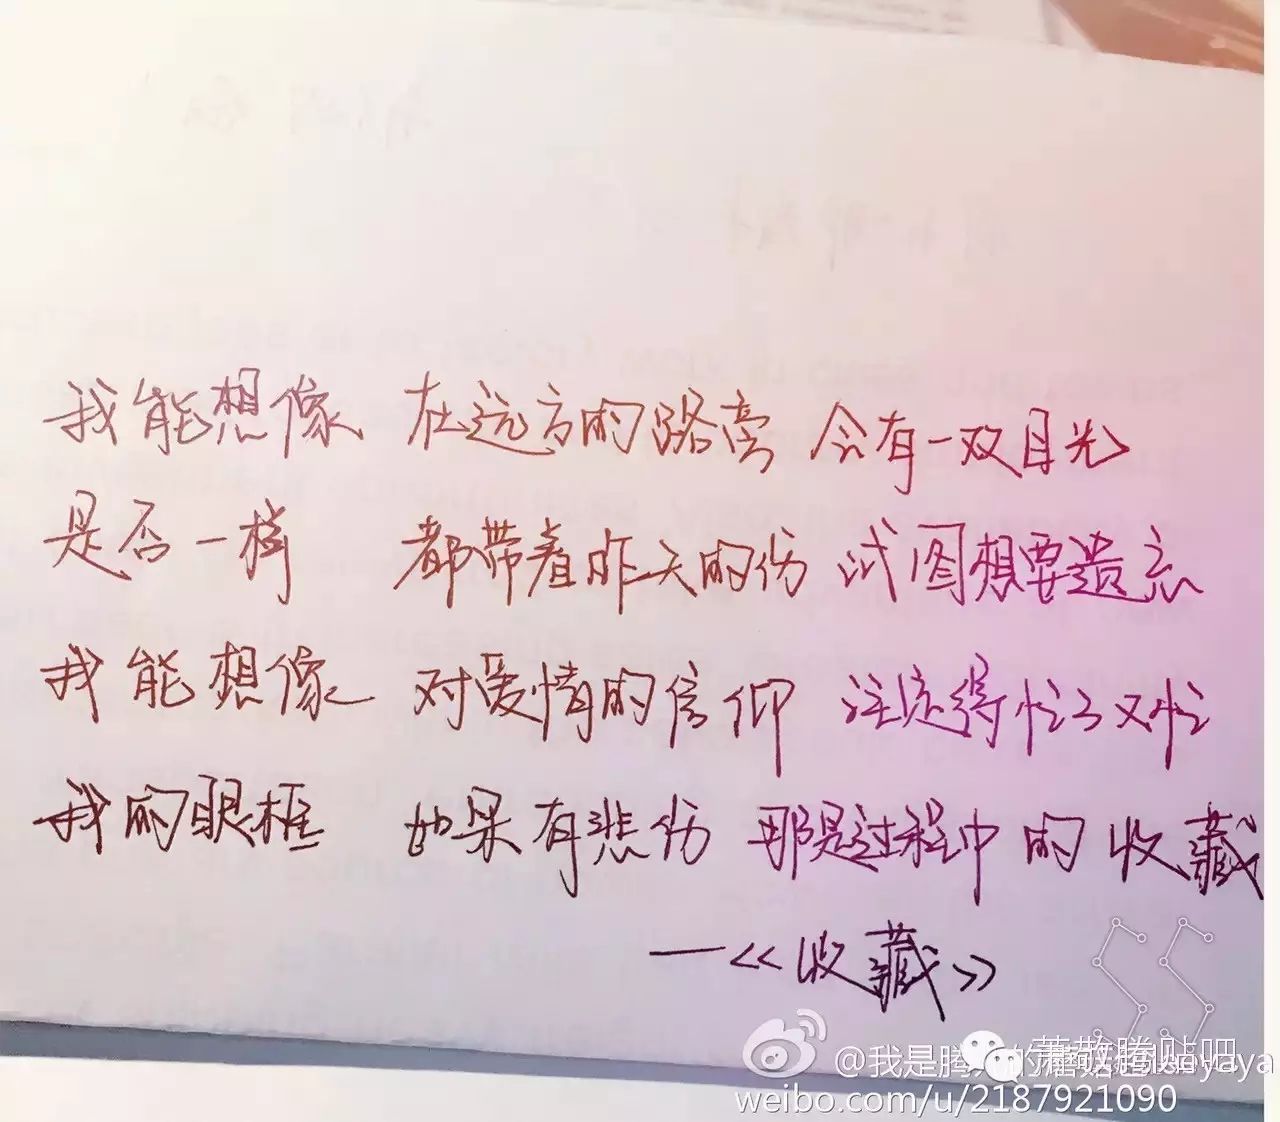 我能想像 在远方的路旁 会有一双目光
是否一样 都带着昨天的伤 试图想要遗忘
我能想像 对爱情的信仰 注定得忙了又忙
我的眼框 如果有悲伤 那是过程中的收藏
——《收藏》
@我是腾
萧敬腾贴吧
weibo.com/u/2187921090